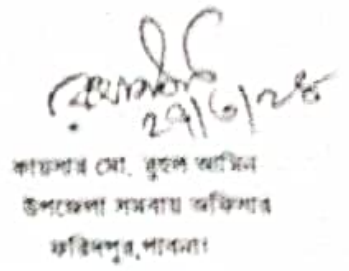 ২৭/৬/২৪
কায়সার মো. রুহুল আমিন
উপজেলা সমবায় অফিসার
ফরিদপুর, পাবনা।